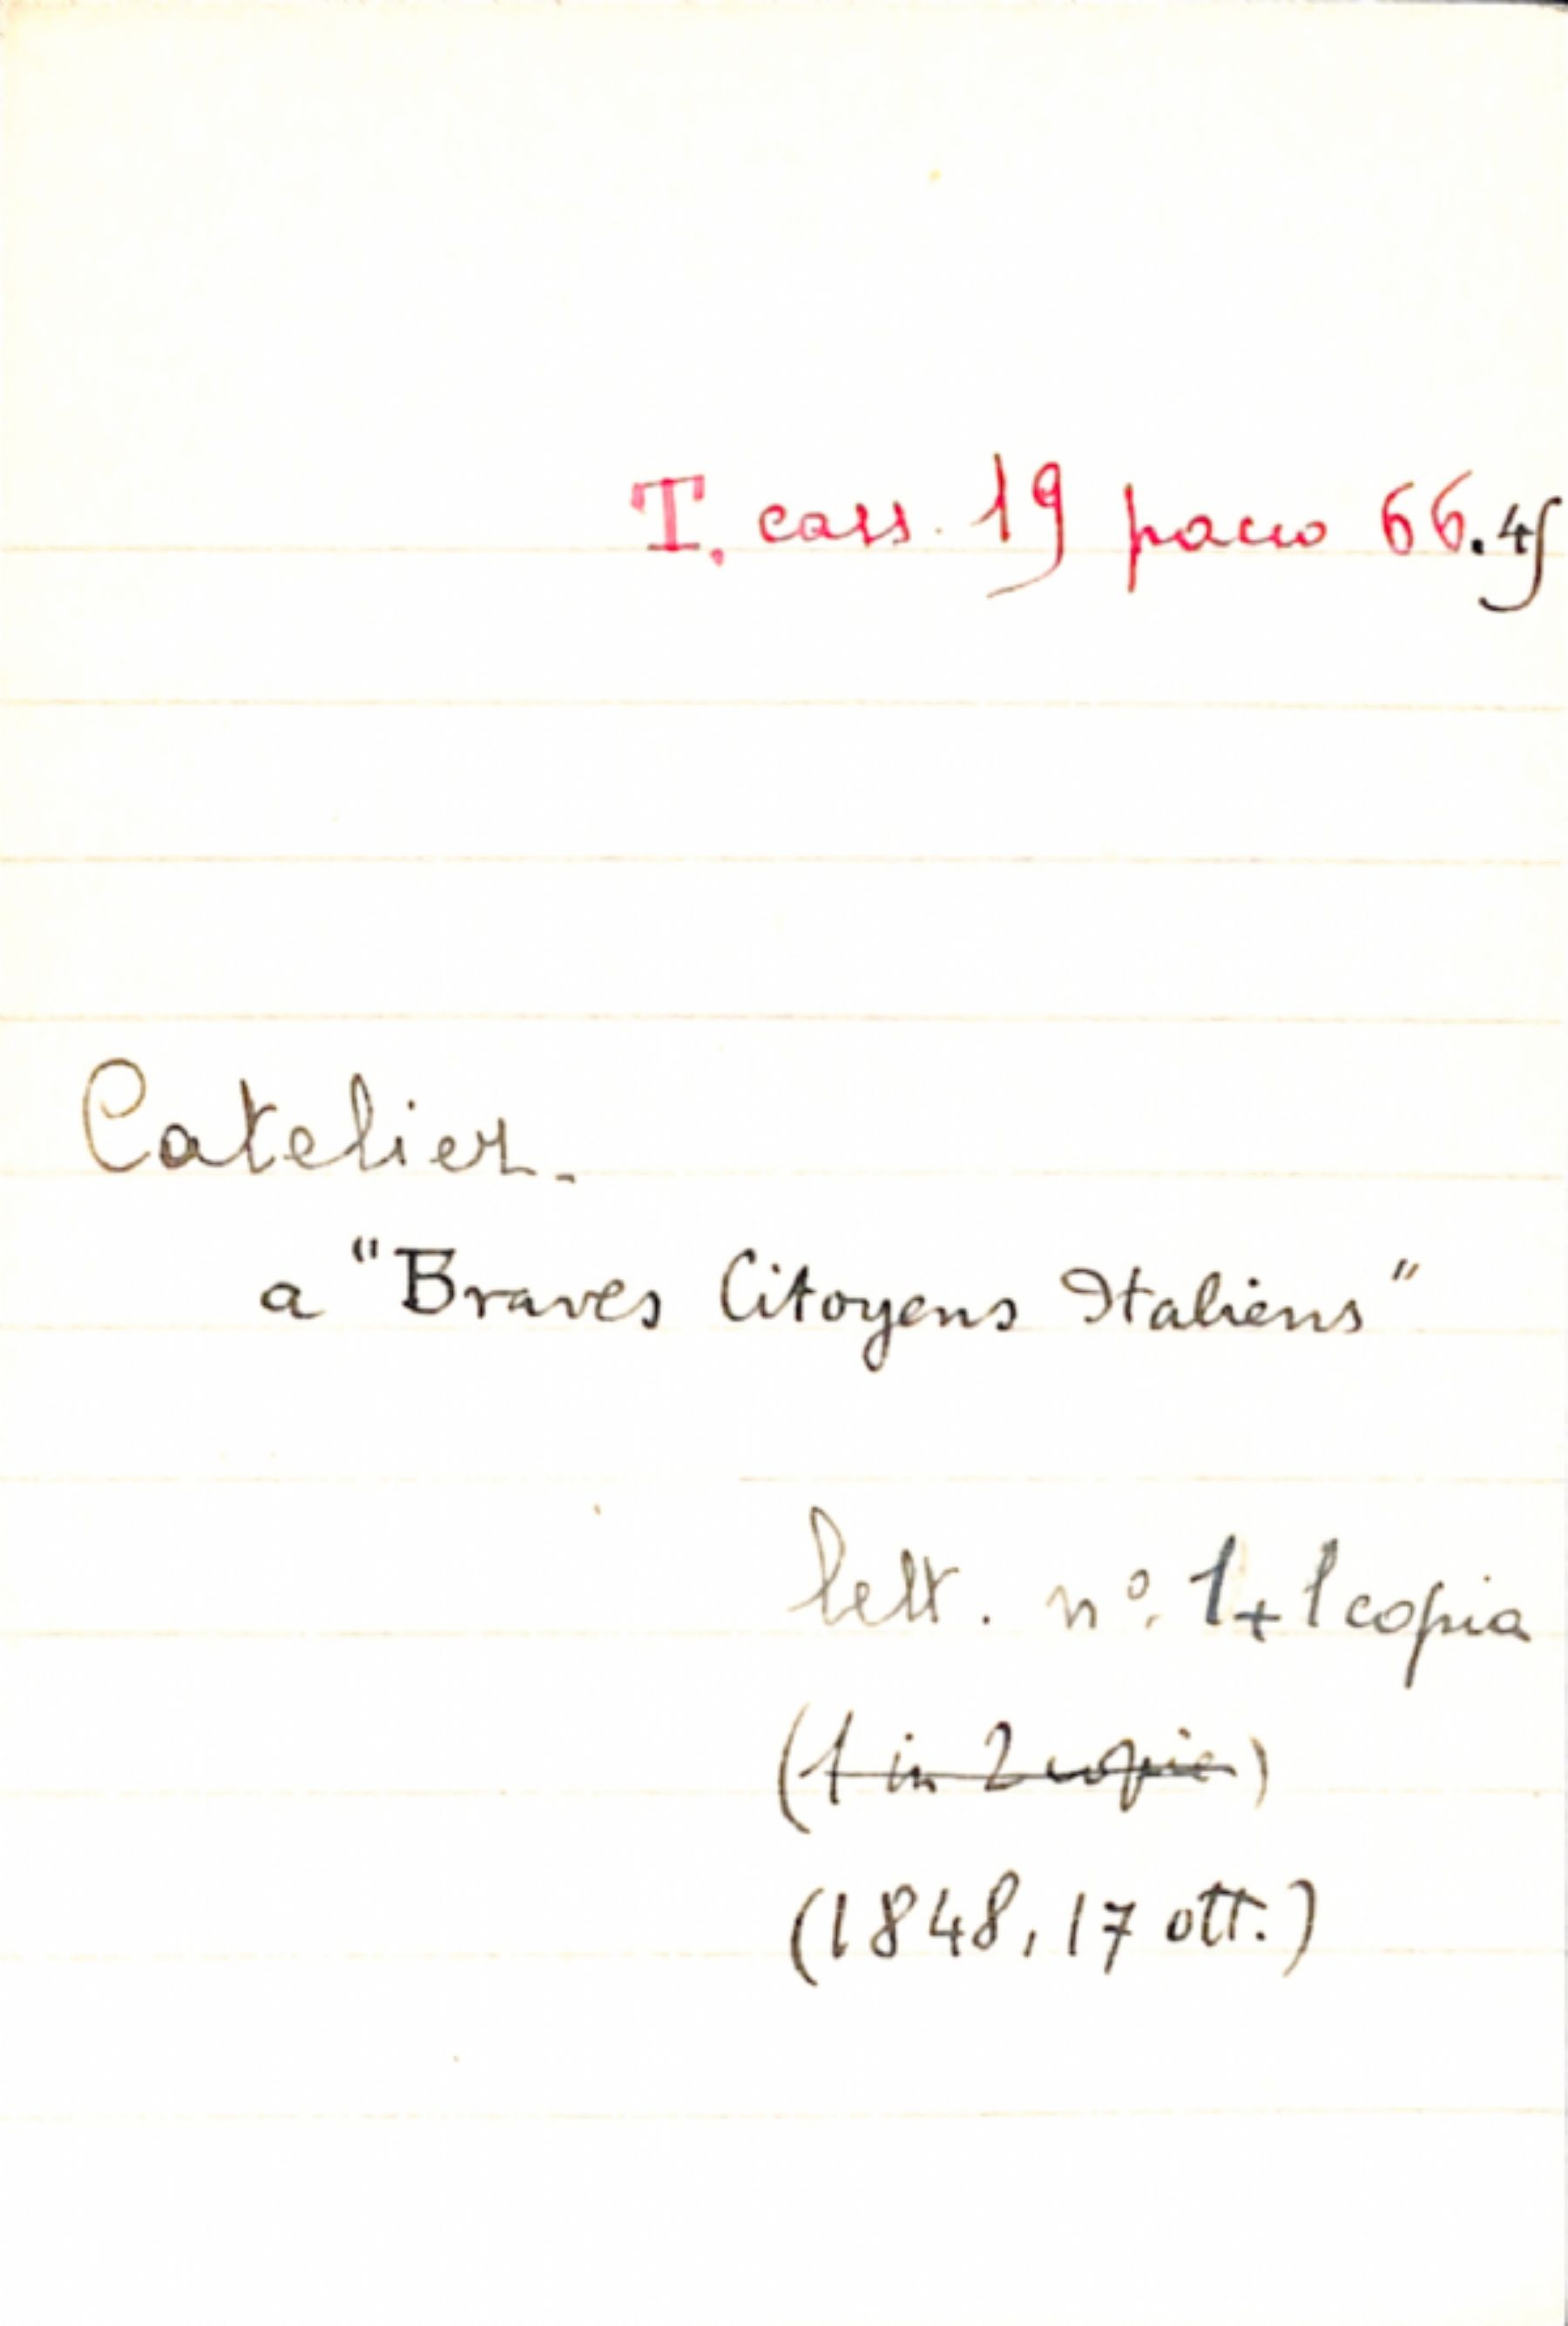 T. cass. 19 pacco 66.45
Catelier.
a "Braves Citoyens Italiens"
lett. n.º 1 + 1 copia
(1 in 2 copie)
(1848, 17 ott.)